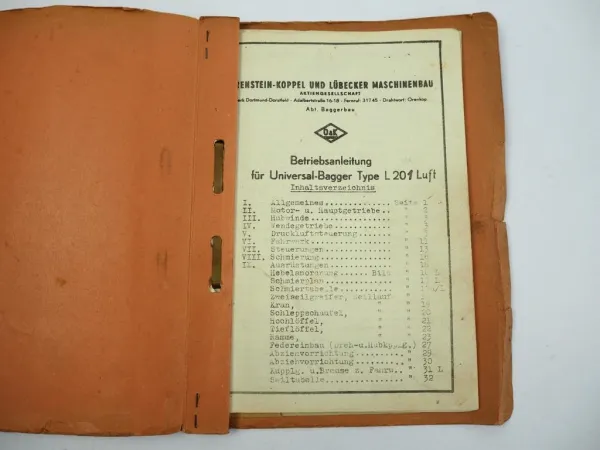 RENSTEIN-KOPPEL UND LÜBECKER MASCHINENBAU
AKTIENGESELLSCHAFT
erk Dortmund-Dorstfeld · Adelbertstraße 16-18 · Fernruf: 31745 · Drahtwort: Orenkop
Abt. Baggerbau
O&K
Betriebsanleitung
für Universal-Bagger Type L 201 Luft
Inhaltsverzeichnis
I. Allgemeines Seite 1
II. Motor- u. Hauptgetriebe "
III. Hubwinde "
IV. Wendegetriebe "
V. Druckluftsteuerung "
VI. Fahrwerk "
VII. Steuerungen "
VIII. Schmierung "
IX. Ausrüstungen "
Hebelanordnung Bild
Schmierplan "
Schmiertabelle "
Zweiseilgreifer,
Kran, " 19
Schleppschaufel, " 20
Hochlöffel, " 21
Tieflöffel, " 22
Ramme, " 23
Federeinbau (Dreh-u.Hubkpplg.) 27
Abziehvorrichtung " 29
Abziehvorrichtung " 30
Kupplg. u.Bremse z. Fahrw. " 31 L
Seiltabelle " 32